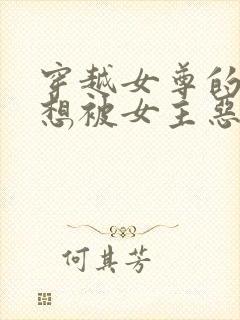 穿越女尊的
想被女主恶
何其芳